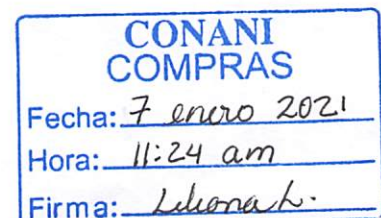 CONANI
COMPRAS
Fecha: 7 enero 2021
Hora: 11:24 am
Firma: Liliana L.